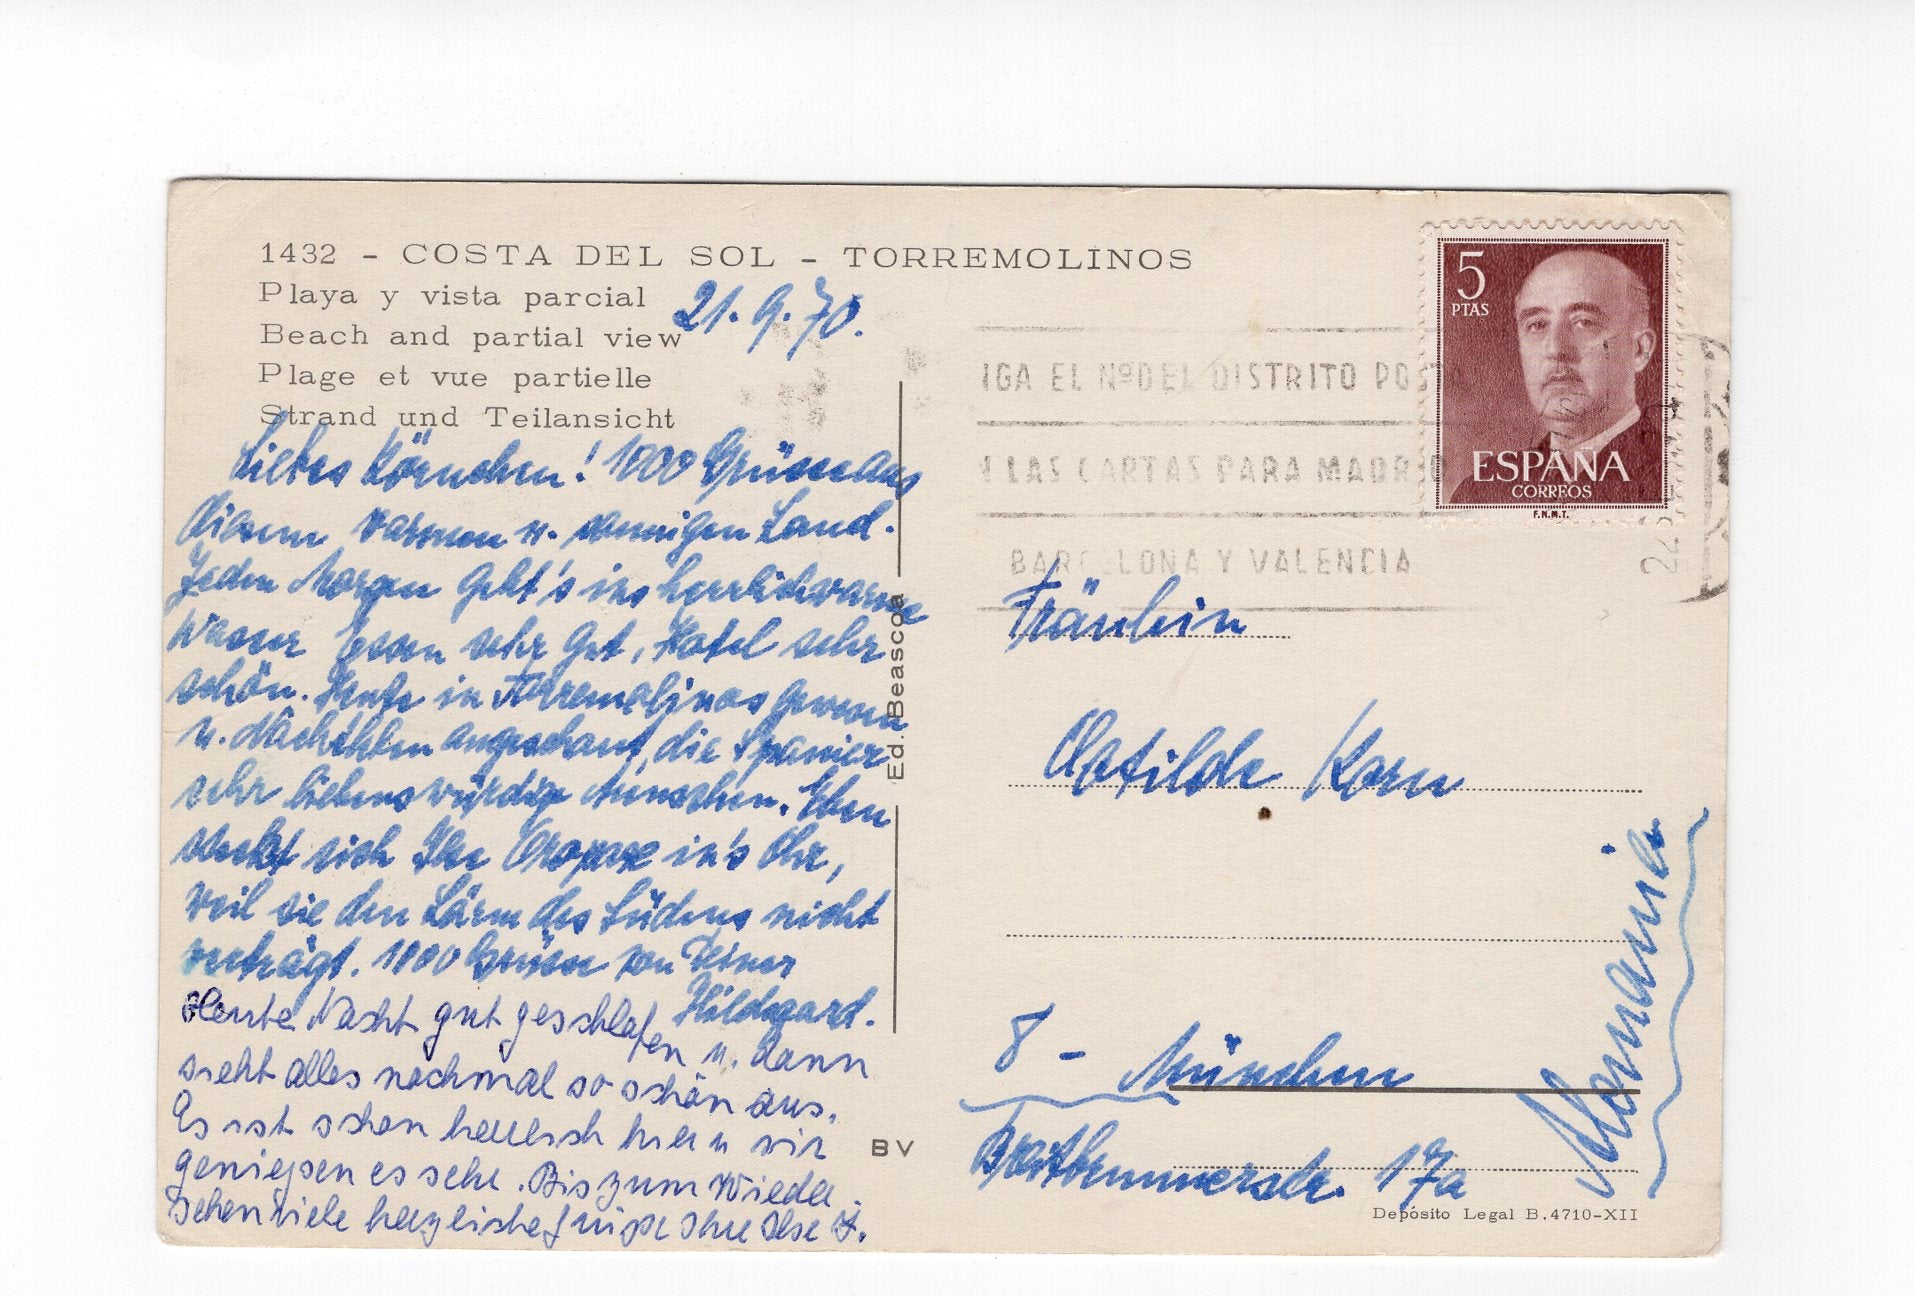 1432 - COSTA DEL SOL - TORREMOLINOS
Playa y vista parcial
Beach and partial view
Plage et vue partielle
Strand und Teilansicht
21.9.70.
Liebes Körnchen! 1000 Grüsse aus
diesem warmen u. sonnigen Land.
Jeden Morgen geht's ins herrlich warme
Wasser Essen sehr gut, Hotel sehr
schön. Heute in Torremolinos gewesen
u. angeschaut, die Spanier
sehr liebenswürdige Menschen. Eben
steckt sich Ilse Oropax in's Ohr,
weil sie den Lärm des Südens nicht
verträgt. 1000 Grüsse von Deiner
Hildegard.
Heute Nacht gut geschlafen u. dann
sieht alles nochmal so schön aus.
Es ist schon herrlich hier u wir
genießen es sehr. Bis zum Wieder
sehen viele herzliche Grüße Ihre Ilse
Ed. Beascoa
BV
5
PTAS
ESPAÑA
CORREOS
F.N.M.T.
IGA EL Nº DEL DISTRITO POST
N LAS CARTAS PARA MADRID
BARCELONA Y VALENCIA
22
Fräulein
Clotilde Korn
8 - München
17a
Alemania
Depósito Legal B.4710-XII